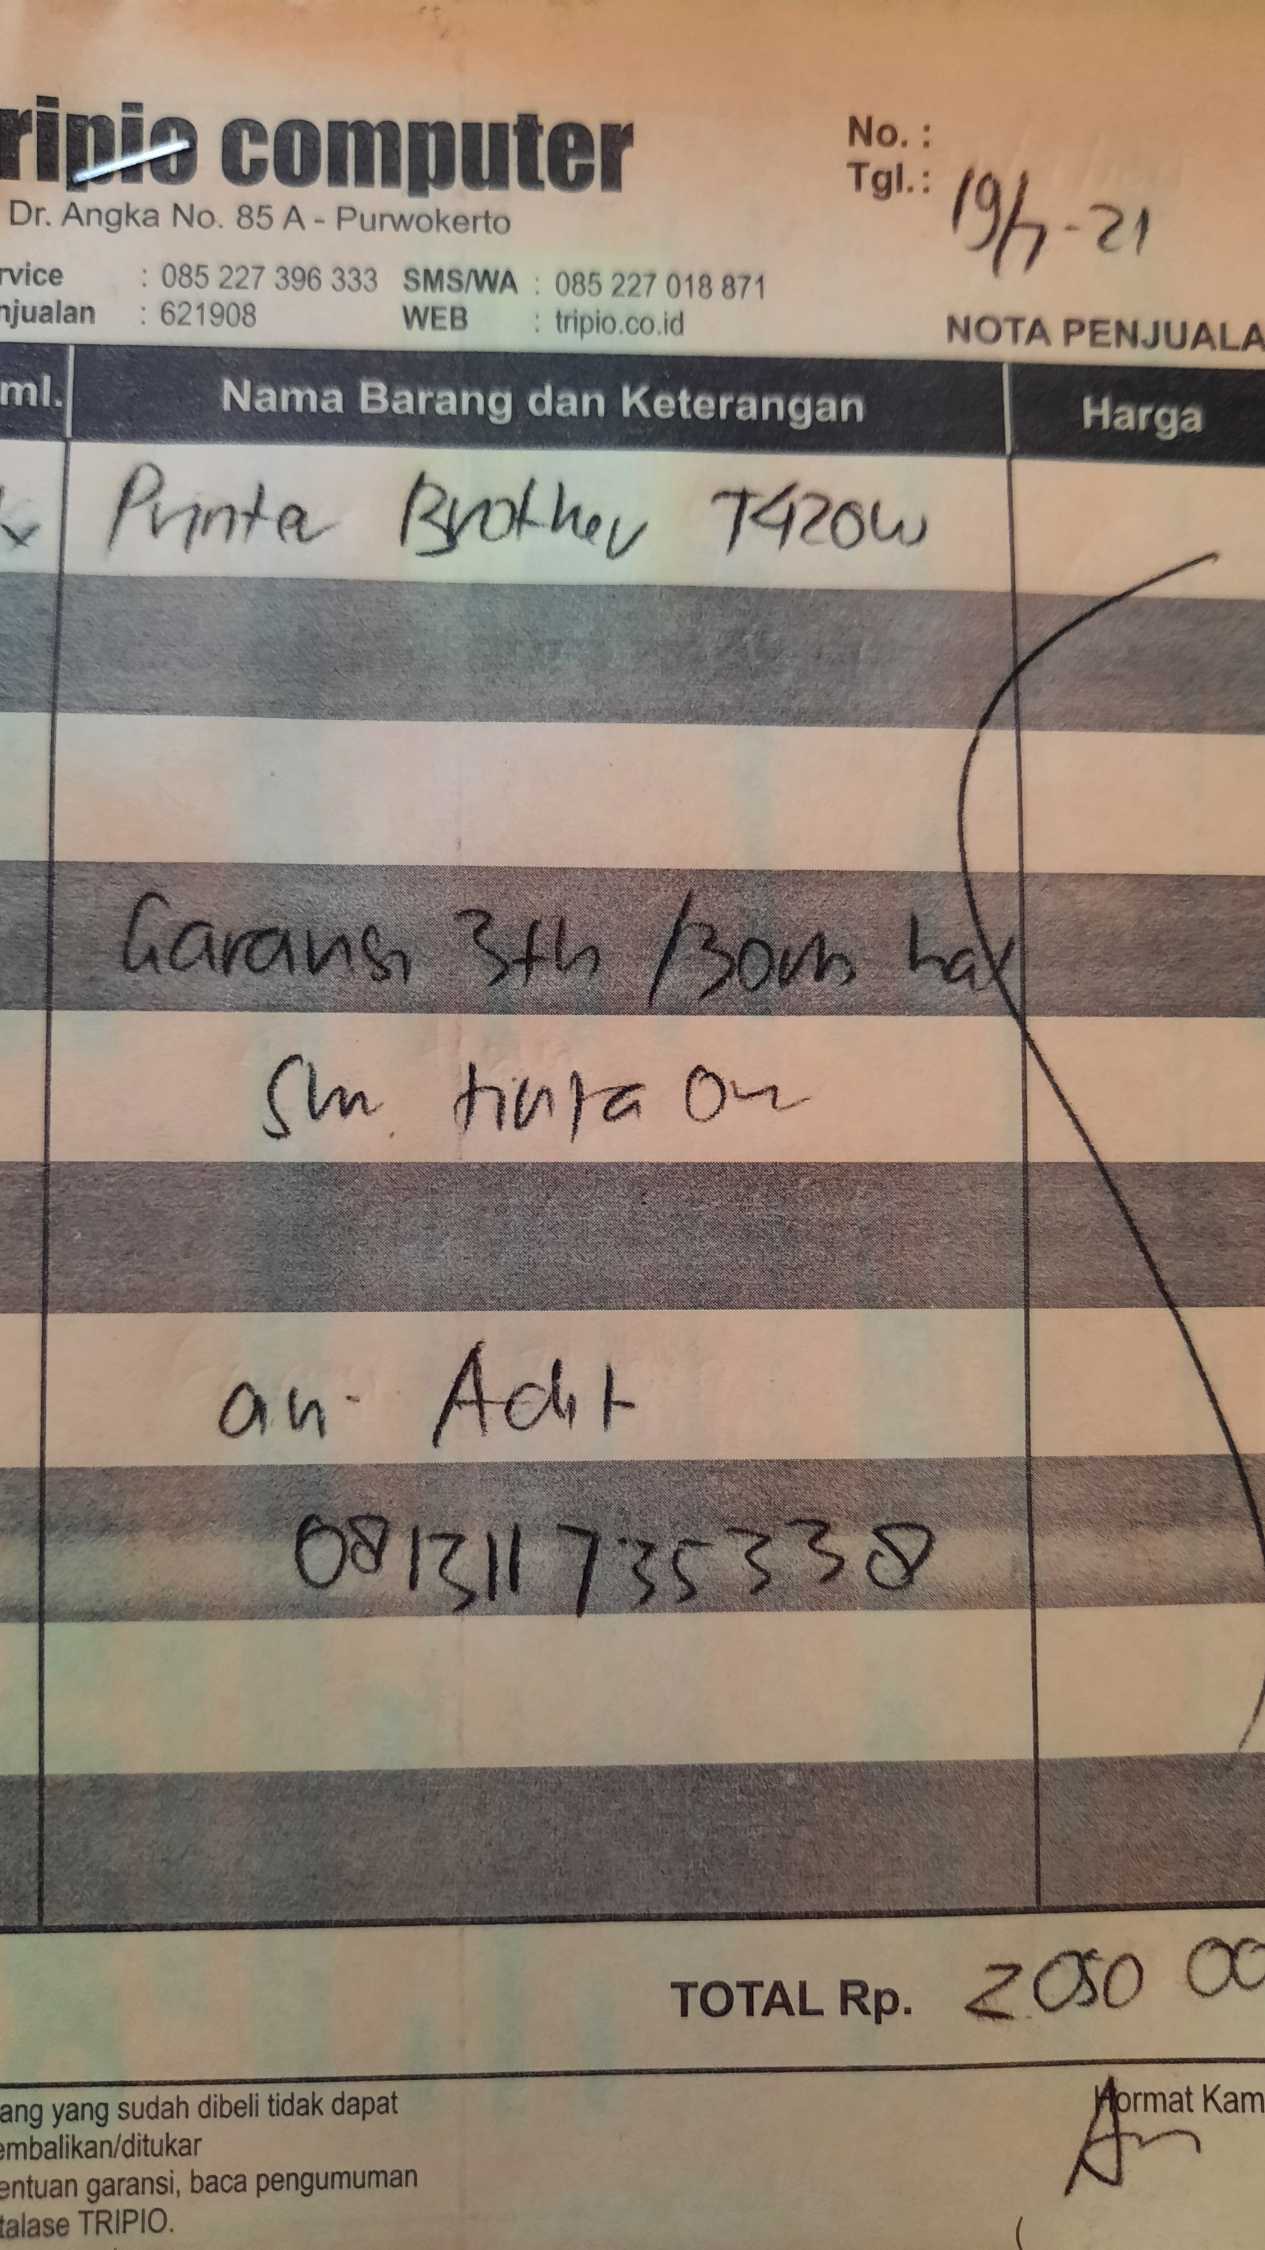 ripio computer
Dr. Angka No. 85 A - Purwokerto
rvice : 085 227 396 333 SMS/WA : 085 227 018 871
njualan : 621908 WEB : tripio.co.id
No. :
Tgl.: 19/7-21
NOTA PENJUALA
ml. Nama Barang dan Keterangan Harga
Printer Brother T420W
Garansi 3th / 30rb hal
tinta Ori
an. Adit
081311735338
TOTAL Rp. 2.050 00
ang yang sudah dibeli tidak dapat
embalikan/ditukar
entuan garansi, baca pengumuman
talase TRIPIO.
Hormat Kam